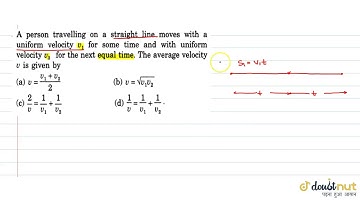 A person travelling on a straight line moves with a
uniform velocity v₁ for some time and with uniform
velocity v₂ for the next equal time. The average velocity
v is given by
(a) v = (v₁ + v₂)/2 (b) v = √v₁v₂
(c) 2/v = 1/v₁ + 1/v₂ (d) 1/v = 1/v₁ + 1/v₂.
S₁ = v₁t
t t
doubtnut